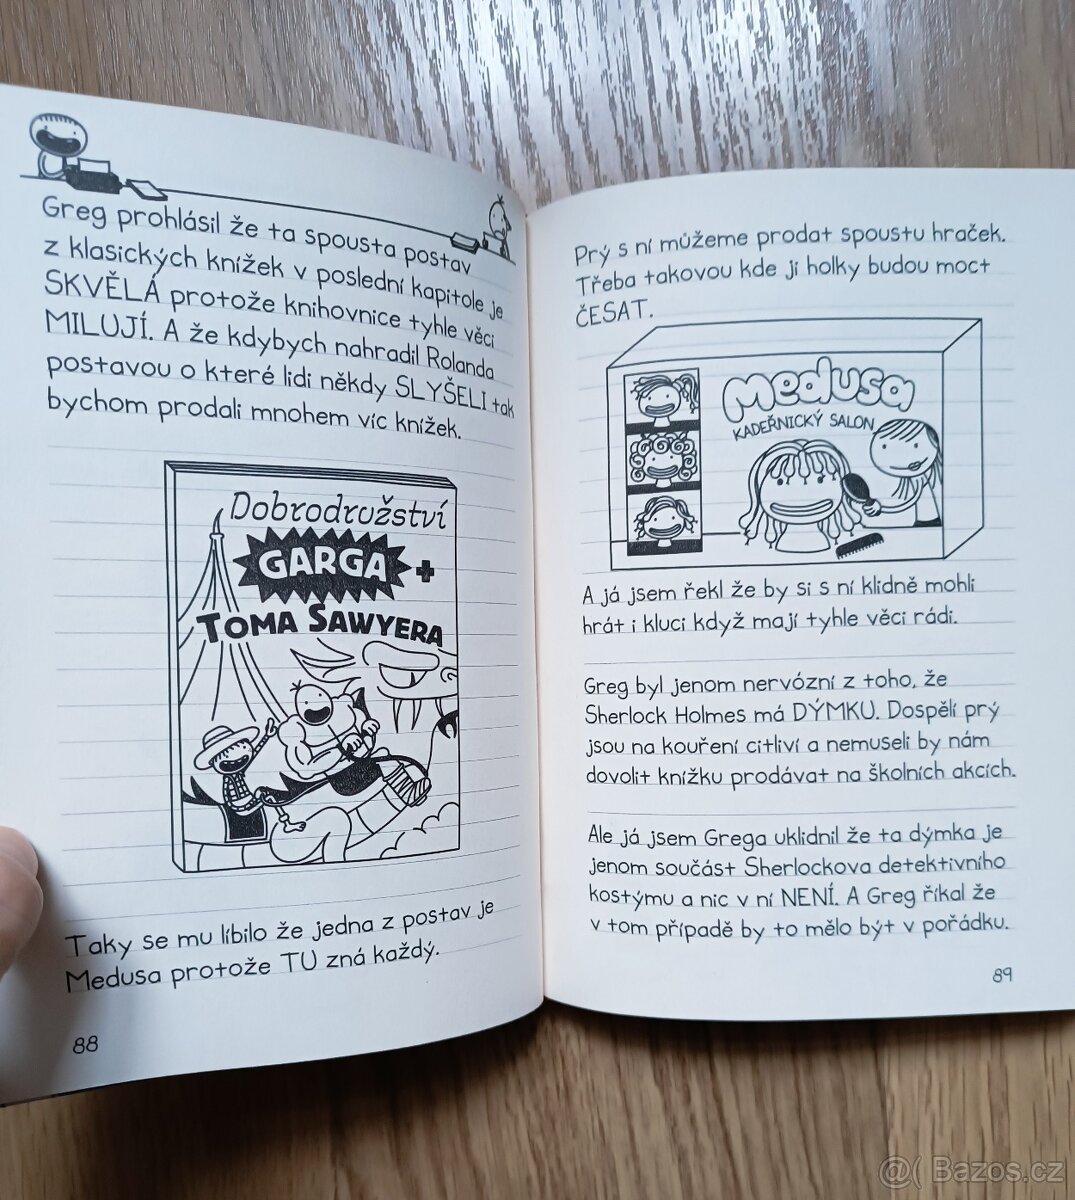 Greg prohlásil že ta spousta postav
z klasických knížek v poslední kapitole je
SKVĚLÁ protože knihovnice tyhle věci
MILUJÍ. A že kdybych nahradil Rolanda
postavou o které lidi někdy SLYŠELI tak
bychom prodali mnohem víc knížek.
Dobrodružství
GARGA +
TOMA SAWYERA
Taky se mu líbilo že jedna z postav je
Medusa protože TU zná každý.
88
Prý s ní můžeme prodat spoustu hraček.
Třeba takovou kde jí holky budou moct
ČESAT.
Medusa
KADEŘNICKÝ SALON
A já jsem řekl že by si s ní klidně mohli
hrát i kluci když mají tyhle věci rádi.
Greg byl jenom nervózní z toho, že
Sherlock Holmes má DÝMKU. Dospělí prý
jsou na kouření citliví a nemuseli by nám
dovolit knížku prodávat na školních akcích.
Ale já jsem Grega uklidnil že ta dýmka je
jenom součást Sherlockova detektivního
kostýmu a nic v ní NENÍ. A Greg říkal že
v tom případě by to mělo být v pořádku.
89
Bazos.cz